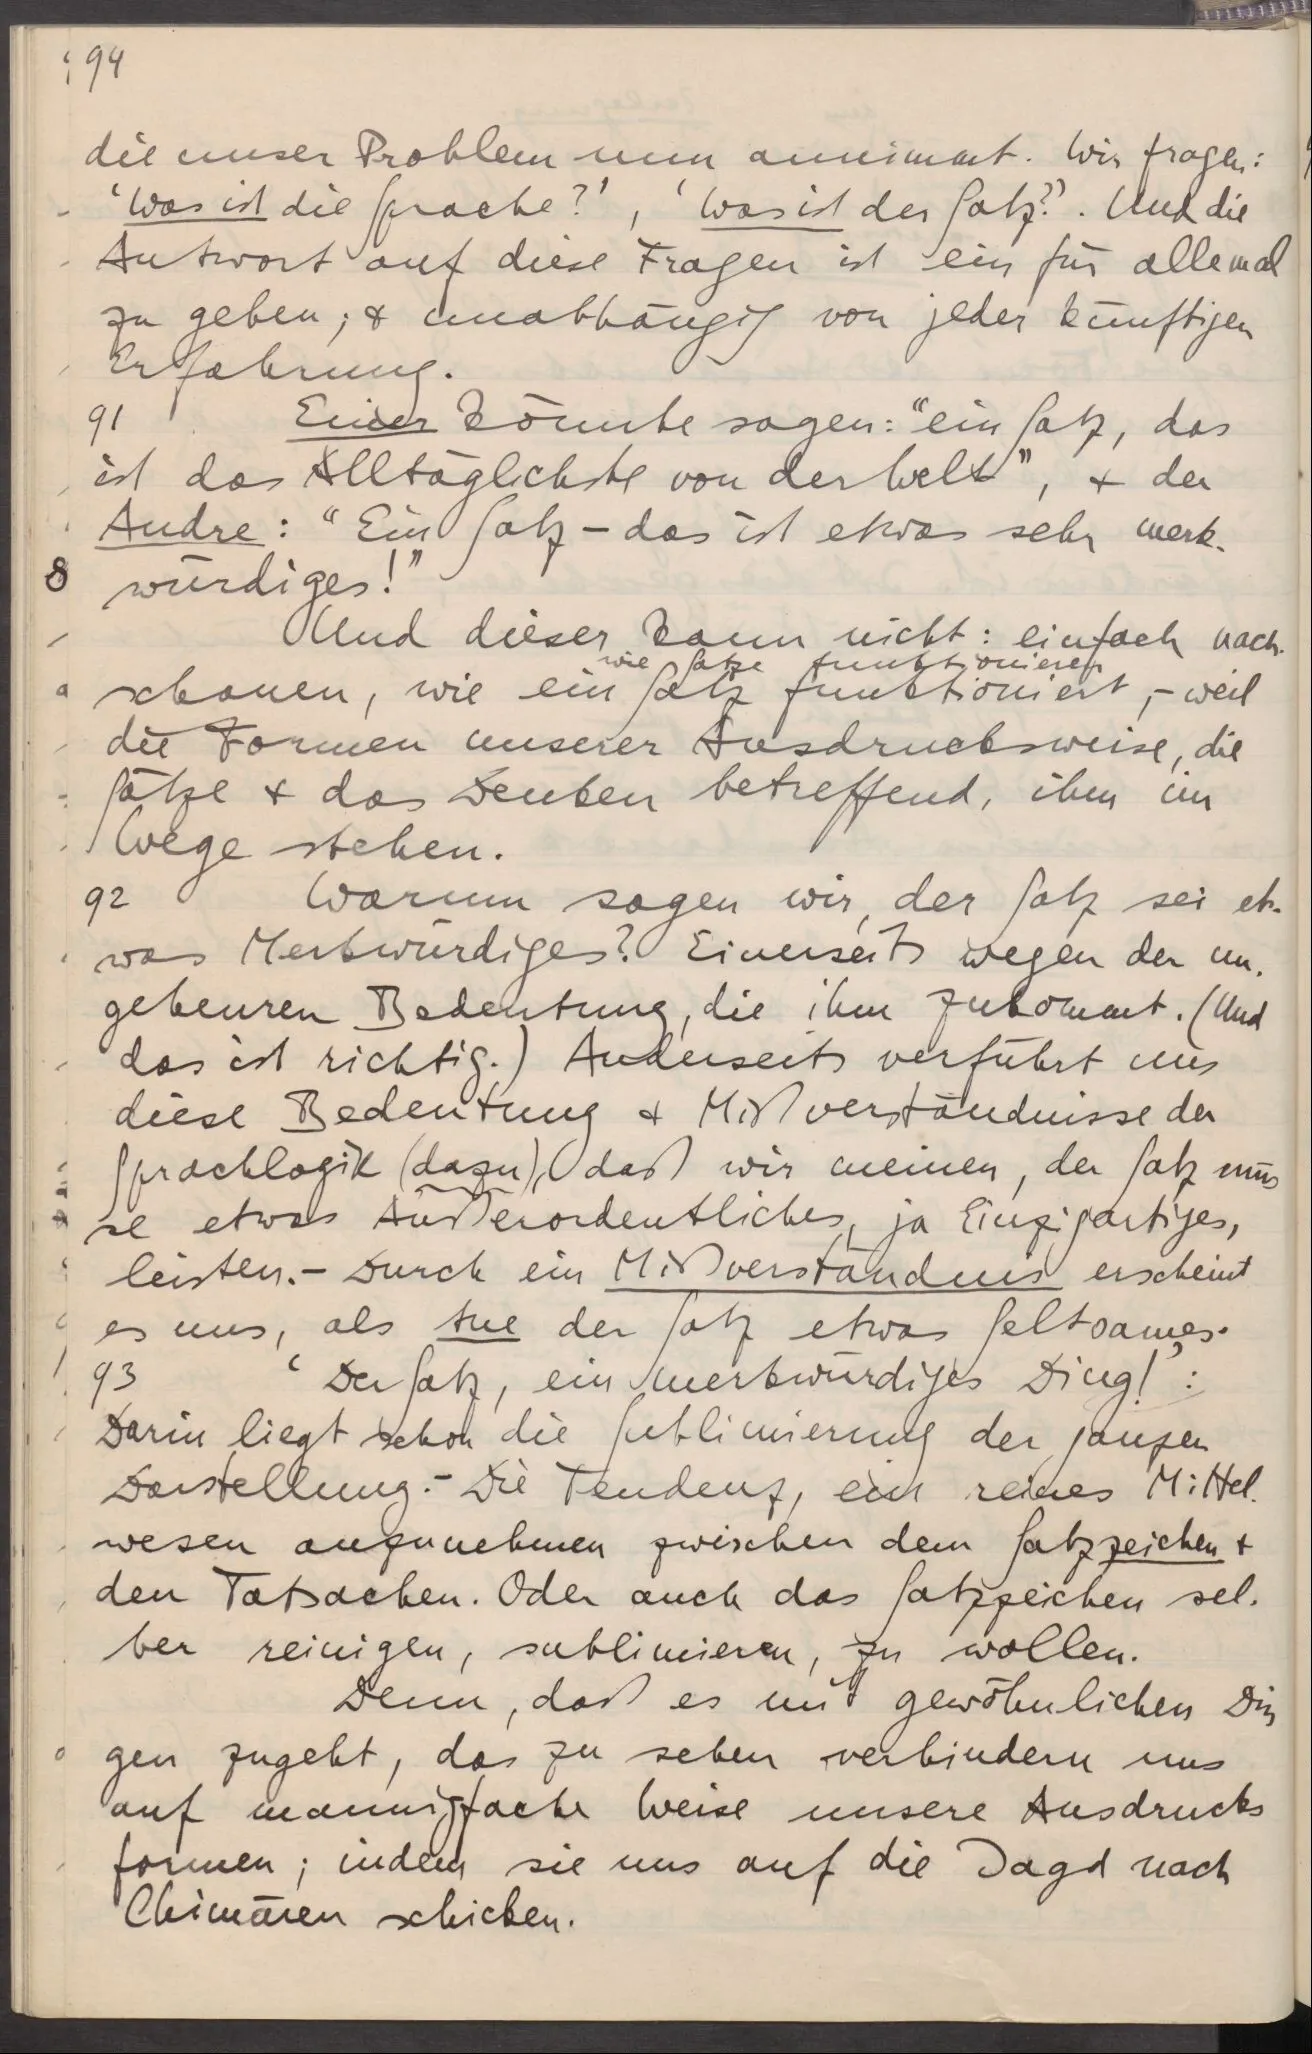 94
die unser Problem nun annimmt. Wir fragen:
‘Was ist die Sprache?’, ‘Was ist der Satz?’. Und die
Antwort auf diese Fragen ist ein für allemal
zu geben; & unabhängig von jeder künftigen
Erfahrung.
91 Einer könnte sagen: “ein Satz, das
ist das Alltäglichste von der Welt”, & der
Andre: “Ein Satz – das ist etwas sehr merk-
würdiges!”
Und dieser kann nicht: einfach nach-
wie Sätze funktionieren
schauen, wie ein Satz funktioniert, – weil
die Formen unserer Ausdrucksweise, die
Sätze & das Denken betreffend, ihm im
Wege stehen.
92 Warum sagen wir, der Satz sei et-
was Merkwürdiges? Einerseits wegen der un-
geheuren Bedeutung, die ihm zukommt. (Und
das ist richtig.) Anderseits verführt uns
diese Bedeutung & Mißverständnisse der
Sprachlogik (dazu), daß wir meinen, der Satz müs
se etwas Außerordentliches, ja Einzigartiges,
leisten. – Durch ein Mißverständnis erscheint
es uns, als tue der Satz etwas Seltsames.
93 ‘Der Satz, ein merkwürdiges Ding!’:
Darin liegt schon die Sublimierung der ganzen
Darstellung. – Die Tendenz, ein reines Mittel-
wesen anzunehmen zwischen dem Satzzeichen &
den Tatsachen. Oder auch das Satzzeichen sel-
ber reinigen, sublimieren, zu wollen.
Denn, daß es mit gewöhnlichen Din
gen zugeht, das zu sehen verhindern uns
auf mannigfache Weise unsere Ausdrucks
formen; indem sie uns auf die Jagd nach
Chimären schicken.